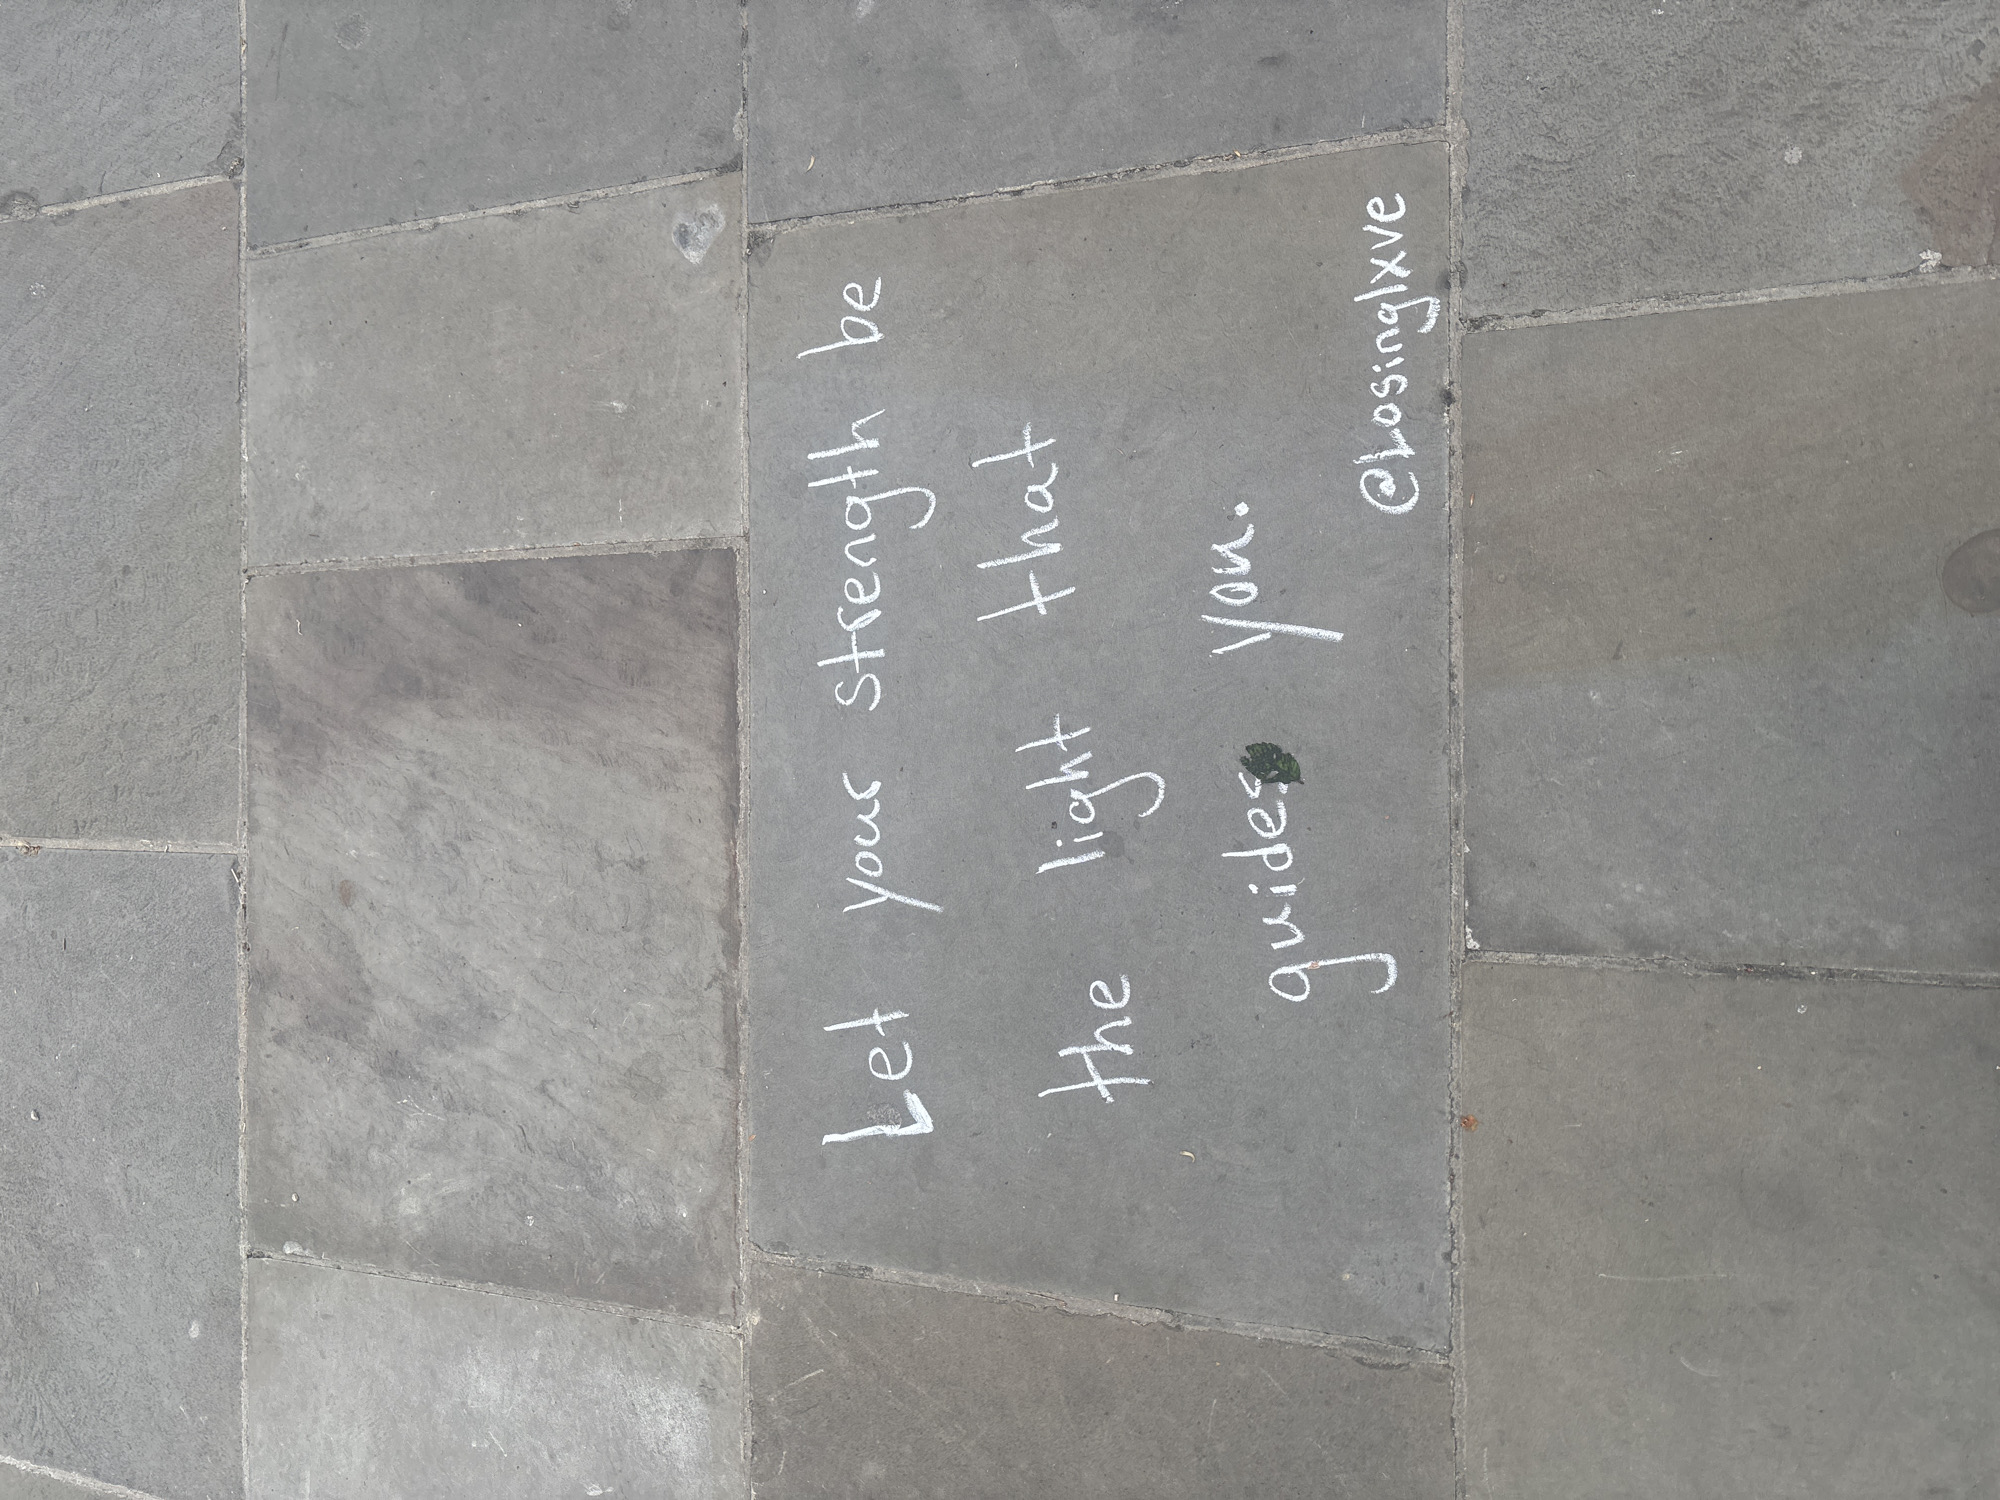 Let your strength be
the light that
guides you.
@Losinglxve